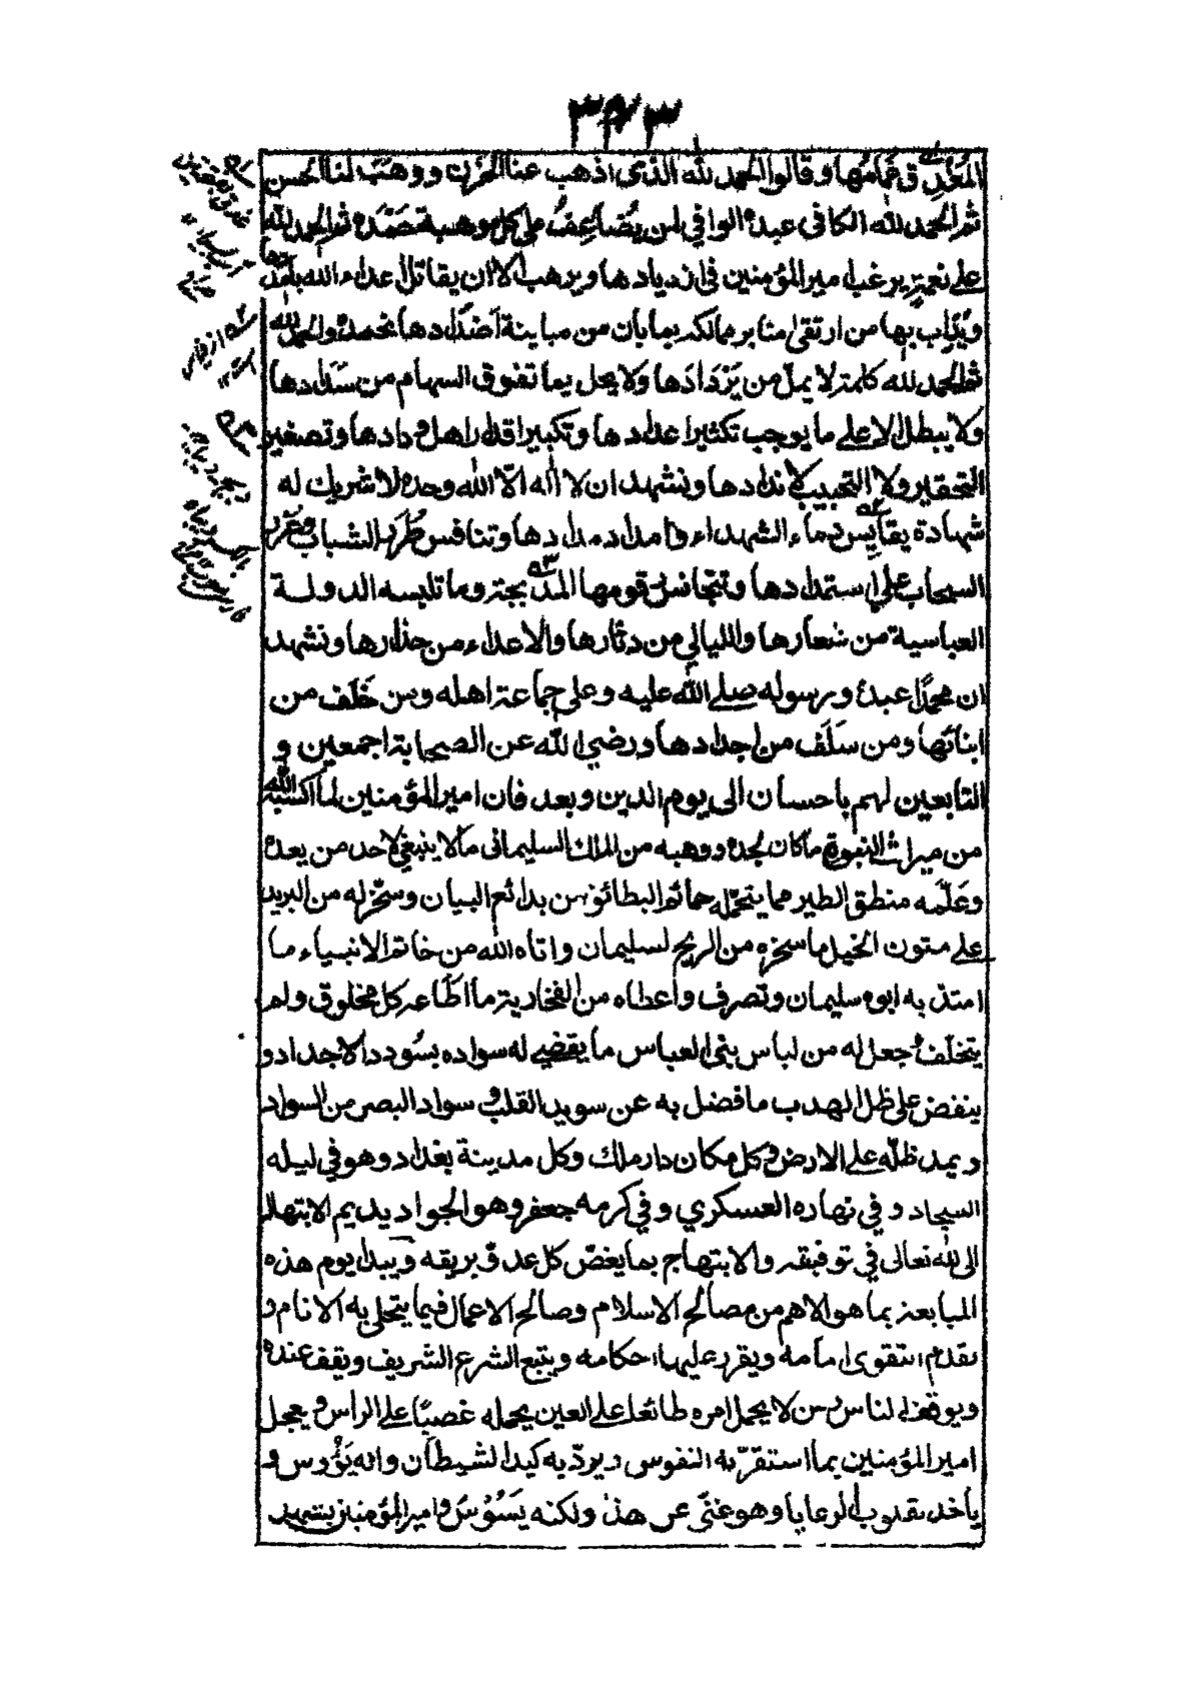 ٣٧٣
المُغدق غمامُها وقالوا الحمد لله الذى اذهب عنا الحزن ووهب لنا الحسن
ثم الحمد لله الكافى عبده الوافي لمن يُضاعِفُ على كل موهبة حَمْدَه ثم الحمد لله
على نعم يرغب امير المؤمنين فى ازديادها ويرهب الا ان يقاتل اعداء الله بامدادها
ويُدأب بها من ارتقى منابر ممالكه بما بان من مباينة أضدادها نحمده والحمد لله
ثم الحمد لله كلمة لا يملّ من يَزْدَادَها ولا يحل بما تفوق السهام من سَدادها
ولا يبطل الا على ما يوجب تكثير اعدادها وتكبير اقدار اهل ودادها وتصغير
التحقير ولا التحبيب لاندادها ونشهد ان لا اله الّا الله وحده لا شريك له
شهادة يقايس دماء الشهداء وامداد مدادها وتنافس طُرَر الشباب وغُرر
السحاب على استمدادها وتتجانس رقومها المدبجة وما تلبسه الدولة
العباسية من شعارها والليالي من دثارها والاعداء من حذارها ونشهد
ان محمدًا عبده ورسوله صلى الله عليه وعلى جماعة اهله ومن خَلَف من
ابنائها ومن سَلَف من اجدادها ورضي الله عن الصحابة اجمعين و
التابعين لهم باحسان الى يوم الدين وبعد فان امير المؤمنين لما اكسبه الله
من ميراث النبوة ما كان لجده ووهبه من الملك السليمانى ما لا ينبغي لاحد من بعده
وعَلّمه منطق الطير مما يتحمّله حمائم البطائق من بدائع البيان وسخّر له من البريد
على متون الخيل ما سخره من الريح لسليمان واتاه الله من خاتم الانبياء ما
امتد به ابوه سليمان وتصرف واعطاه من الفخار به ما اطاعه كل مخلوق ولم
يتخلف وجعل له من لباس بنى العباس ما يقضي له سواده بسُودد الاجداد و
ينفض على ظل الهدب ما فضل به عن سويد القلب وسواد البصر من السواد
ويمد ظلّه على الارض وكل مكان دار ملك وكل مدينة بغداد وهو في ليله
السجاد وفي نهاره العسكري وفي كرمه جعفر وهو الجواد يديم الابتهال
الى الله تعالى في توفيقه والابتهاج بما يغصّ كل عدوّ بريقه ويبدأ يوم هذه
المبايعة بما هو الاهم من مصالح الاسلام وصالح الاعمال فيما يتحلى به الانام و
يقدم التقوى امامه ويقرر عليها احكامه ويتبع الشرع الشريف ويقف عنده
ويوقف الناس ومن لا يحمل امره طائعا على العين يحمله غصبًا على الراس ويعجل
امير المؤمنين بما استقرّ به النفوس ويردّ به كيد الشيطان وانه يَؤُوس و
ياخذ بقلوب الرعايا وهو غنّى عن هذا ولكنه يَسُوس وامير المؤمنين يشهد